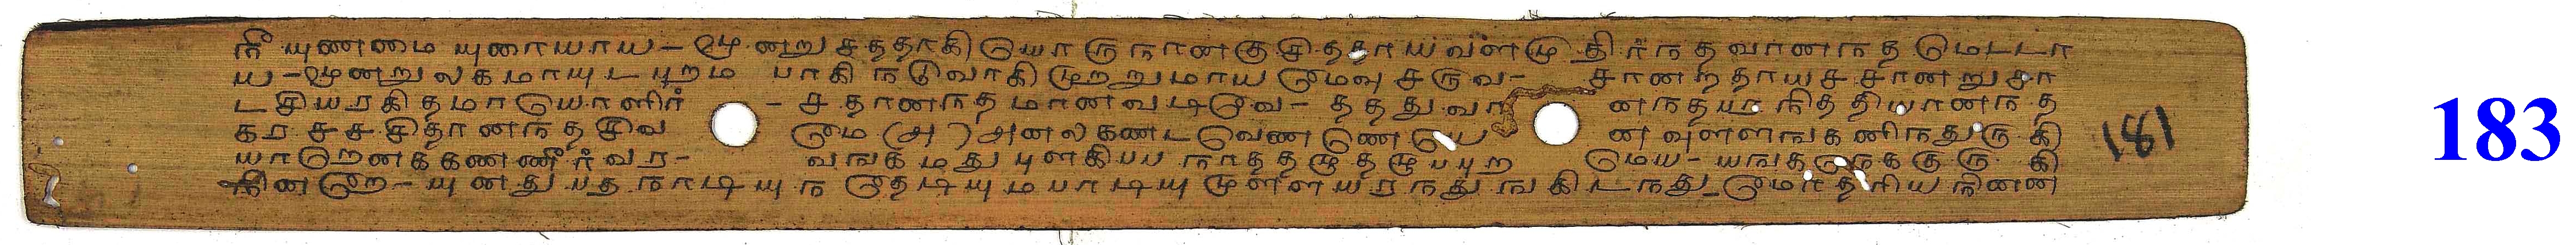 நீ யுணணமை யுணாயாய - மூனறு சததாகி யொரு நானகு சிததாய வளமு திர்நத வானநத மெடடா
ய - மூனறுலகமாயுடபுறம பாகி நடுவாகி முறறுமாய மெவு சருவ - சானறதாயச சானறு சா
டசியரகிதமாயொளிர் - சதானநதமானவடிவெ - தததுவா னநதயா நிததியானநத
கர சசசிதானநத சிவ மெ (அ) அனலகணட வெணணெயெ னவுளளஙகணிநதுரு கி
யாறெனககணணீர்வர - வஙகமது புளகிபப நாததழுதழுபபுற மெய - யஙகருகக குரு கி
நினறெ - யுனது பத நாடியு ந தெடியும பாடியு முளளயரநது ஙகிடநது - மெ நினன
181
183